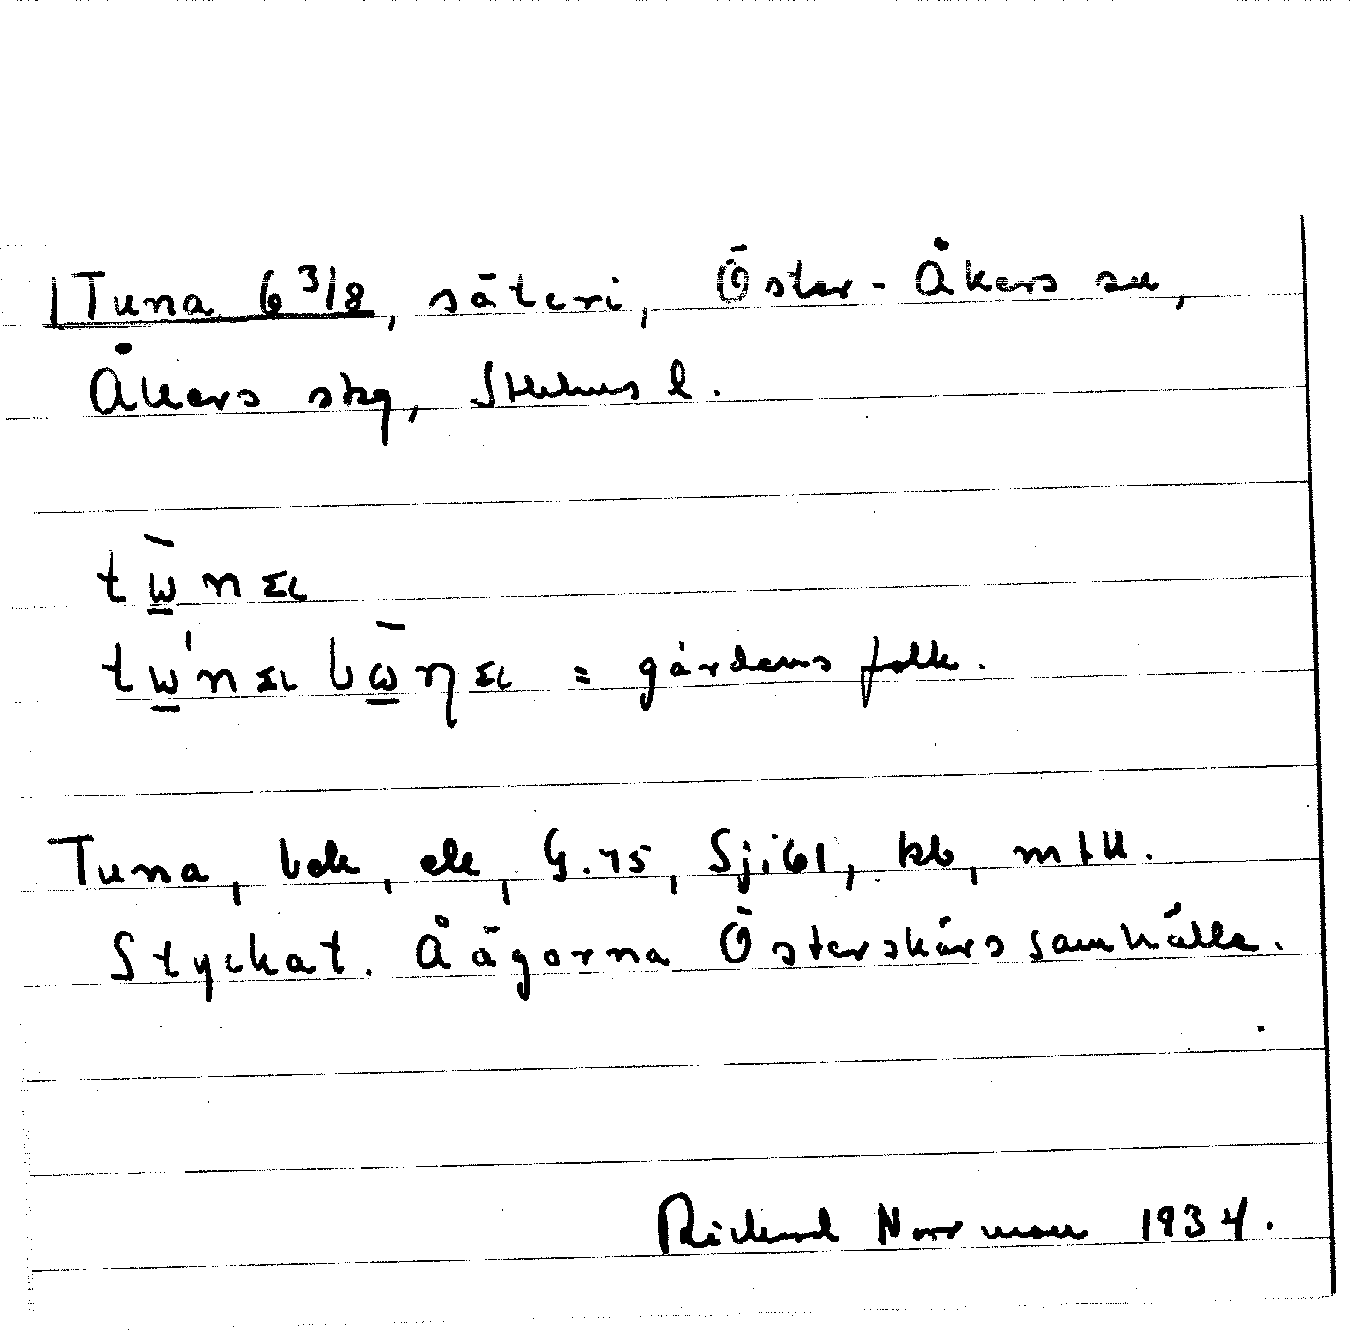 Tuna 6 3/8, säteri, Öster-Åkers sn,
Åkers skg, Sthlms l.
tὼ̲nａ
tω̲'na bὼ̲ŋa = gårdens folk.
Tuna, bek, ek, G.75, Sj:61, kb, mtll.
Styckat. Å ägorna Österskärs samhälle.
Rickard Norrman 1934.